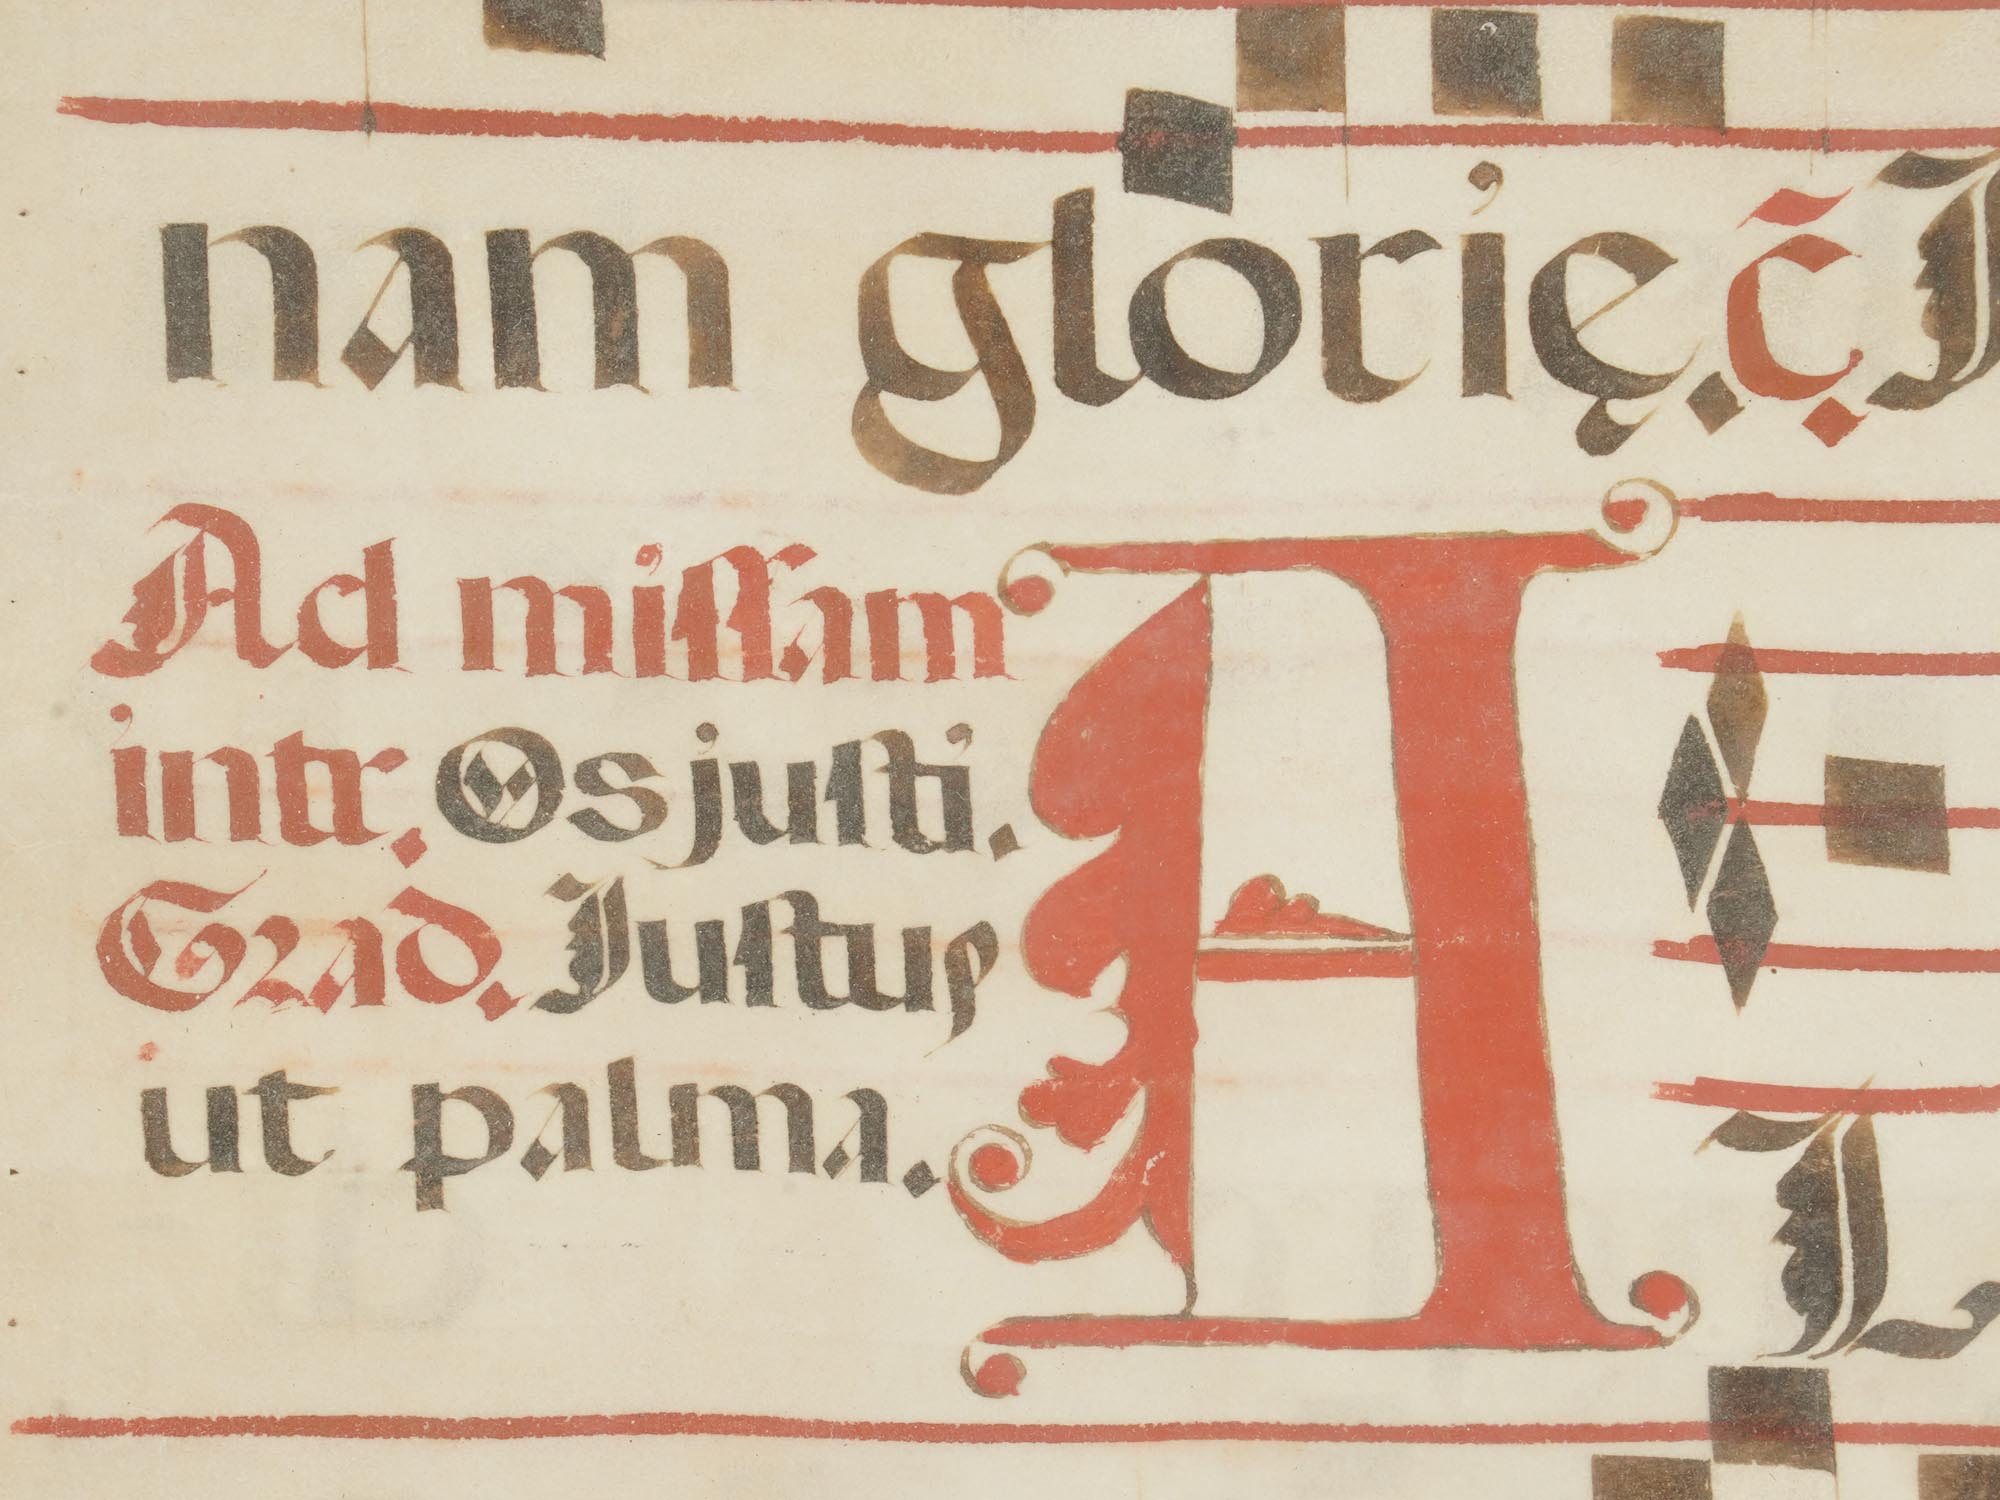 nam glorię. c̃. I
Ad miſſam
intr. Os juſti.
Grad. Iuſtuꝯ
ut palma.
A L